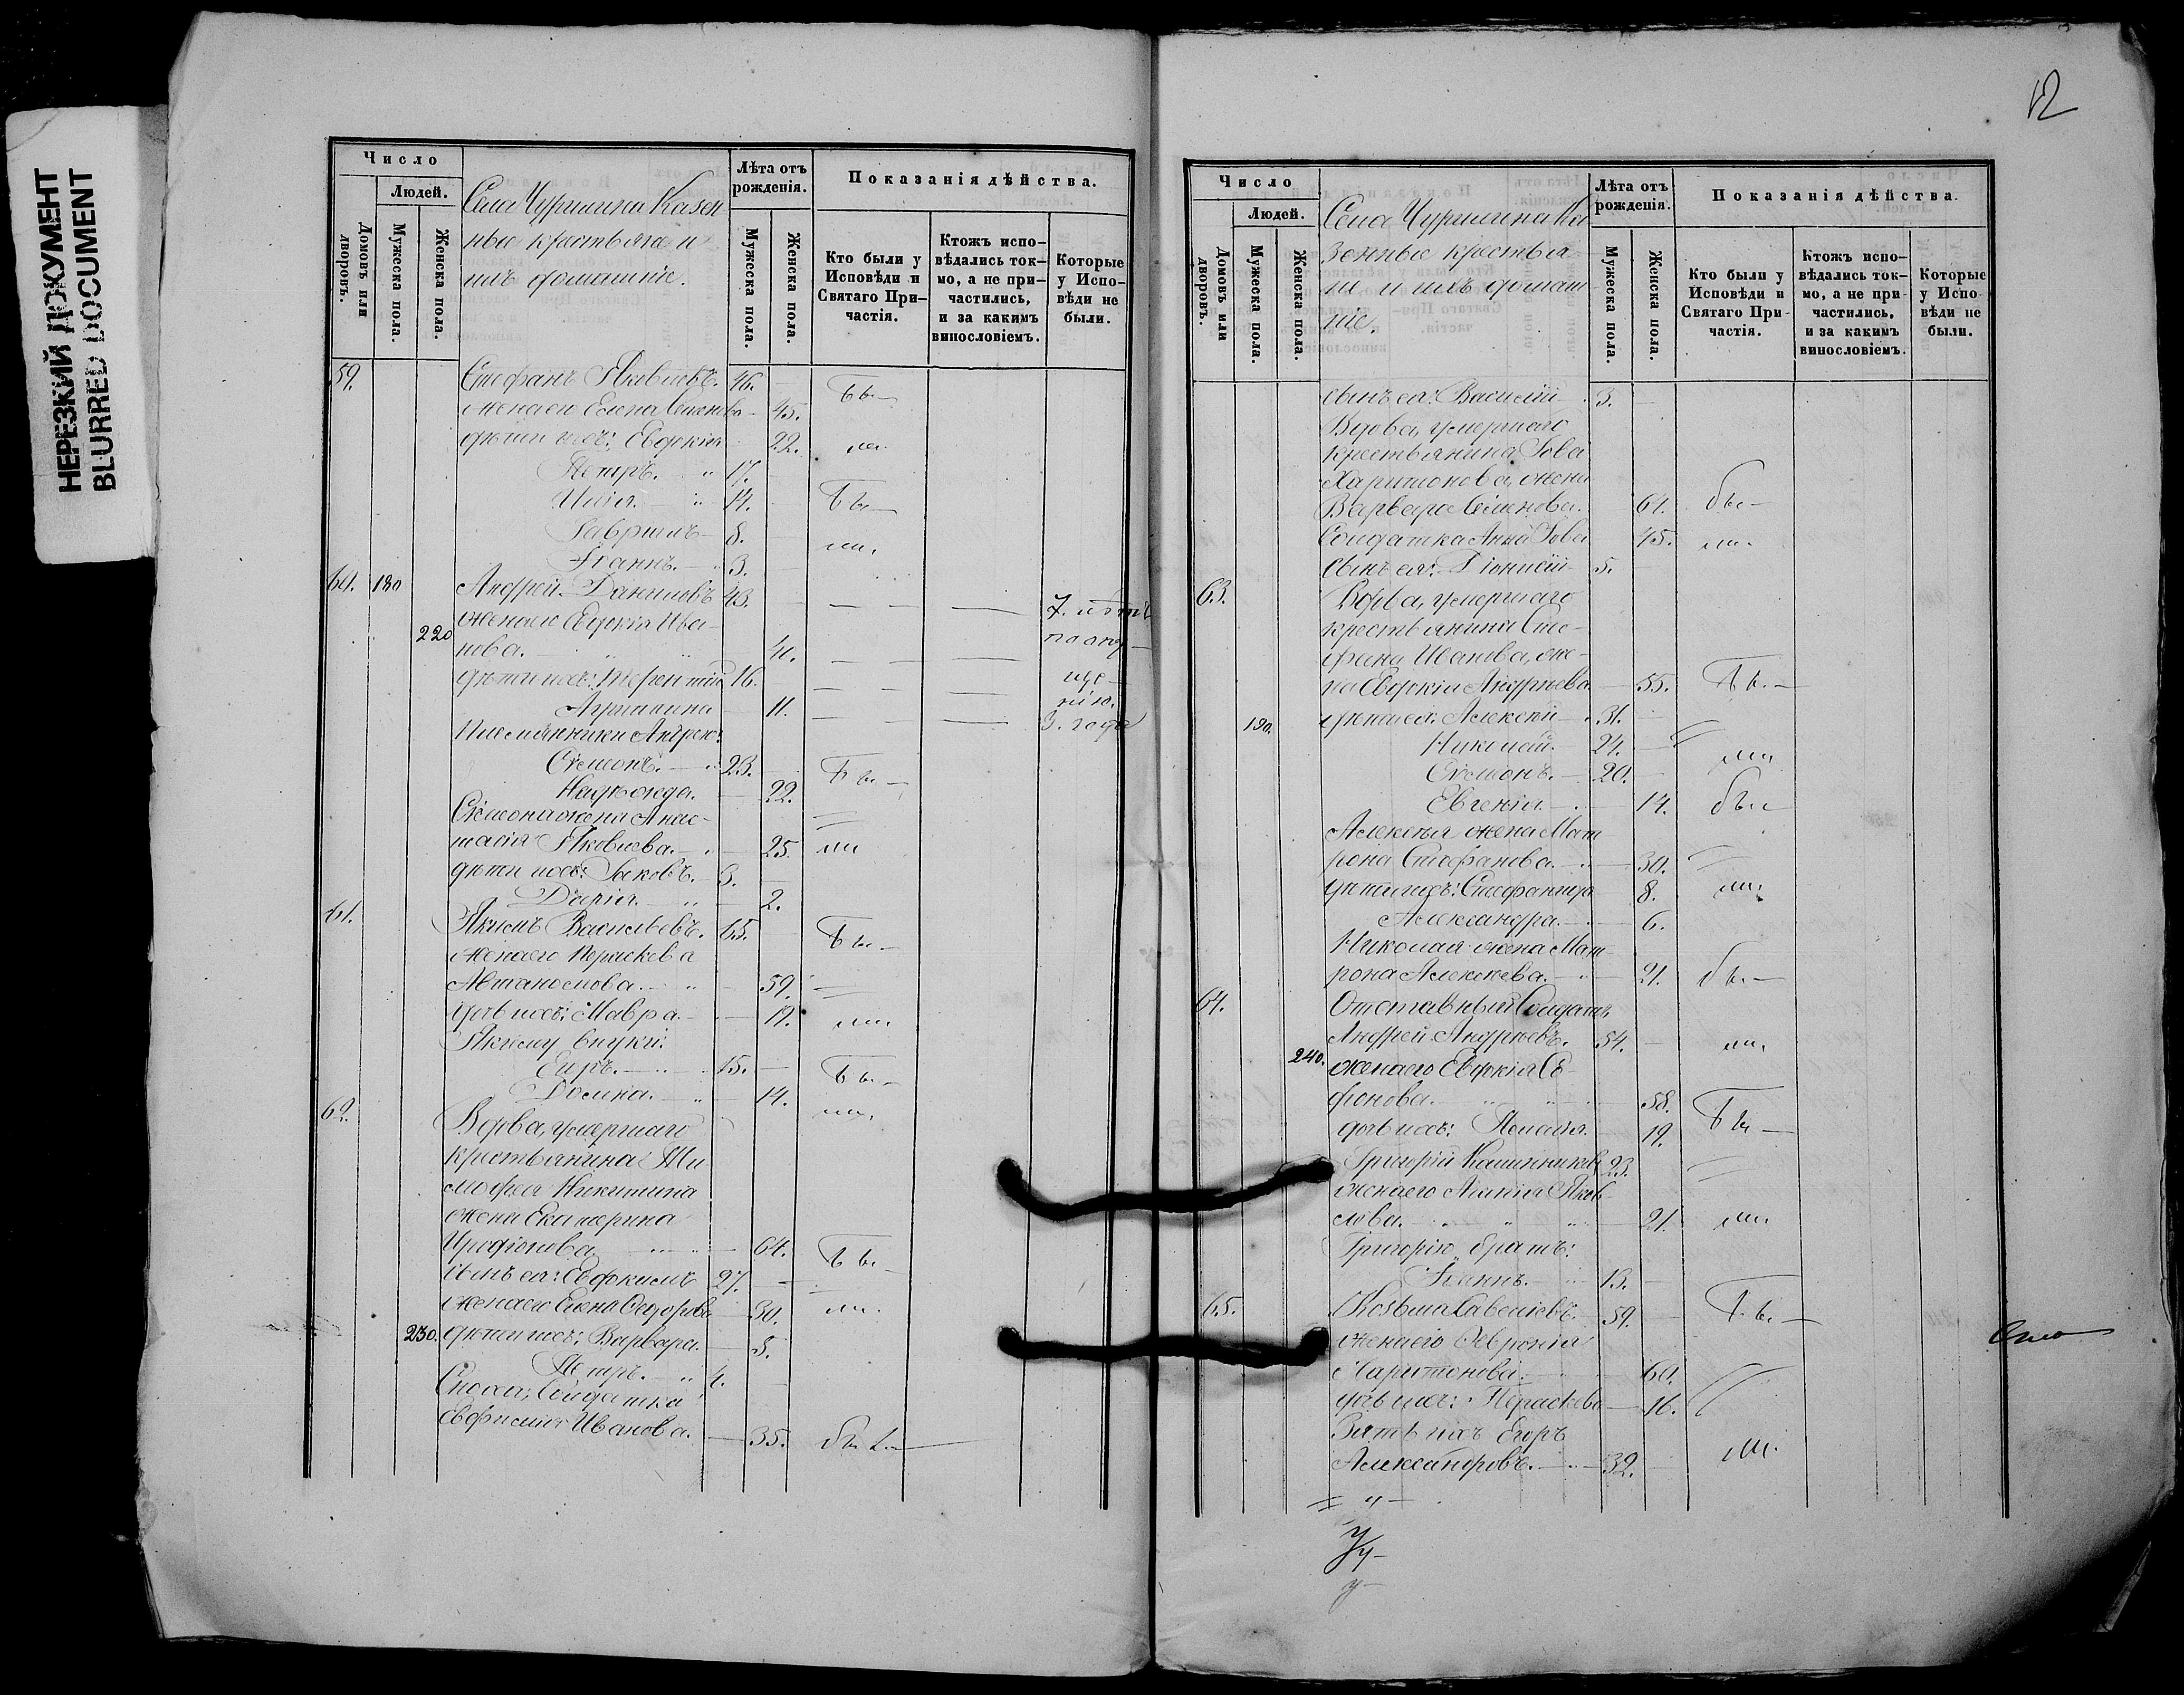 НЕРЕЗКИЙ ДОКУМЕНТ
BLURRED DOCUMENT
Число
Людей.
Домовъ или дворовъ.
Мужеска пола.
Женска пола.
Села Чуршина Казен
ные крестьяне и
ихъ домашніе.
Лѣта отъ рожденія.
Мужеска пола.
Женска пола.
Показанія дѣйства.
Кто были у Исповѣди и Святаго При-частія.
Ктожъ испо-вѣдались ток-мо, а не при-частились, и за какимъ винословіемъ.
Которые у Испо-вѣди не были.
59. Стефанъ Яковлевъ. 46. бы
жена его Елена Семенова 45.
дѣти ихъ: Евдокія 22. ли
Петръ. 17.
Илія. 14. бы
Гавріилъ 8. ли.
Іоаннъ. 3.
60. 180 Андрей Даниловъ 43. — —
220 жена его Евдокія Ива-
нова. 41. — —
дѣти ихъ: Терентій 16. — —
Агрипина 11. — —
по опу
ще
нію.
3. года
Племянники Андрею:
Сѵмеонъ. 23. бы
Надежда. 22.
Сѵмеона жена Анас-
тасія Яковлева. 25. ли
дѣти ихъ: Іаковъ. 3.
Дарія. 2.
61. Якимъ Васильевъ. 65. бы
жена его Параскева
Автаномова. 59.
дочь ихъ: Мавра. 19. ли.
Якиму внуки:
Егоръ. 15. бы
Домна. 14. ли.
62. Вдова, умершаго
крестьянина Ти
мофея Никитина
жена Екатерина
Иродіонова 64. бы
сынъ ея: Евдокимъ 27.
жена его Елена Ѳедорова 30. ли.
230. дѣти ихъ: Варвара. 5.
Петръ. 4.
Сноха, Солдатка
Евфимія Иванова. 35. бы л.
12
Число
Людей.
Домовъ или дворовъ.
Мужеска пола.
Женска пола.
Села Чуршина Ка
зенные крестья
не и ихъ домаш
ніе.
Лѣта отъ рожденія.
Мужеска пола.
Женска пола.
Показанія дѣйства.
Кто были у Исповѣди и Святаго При-частія.
Ктожъ испо-вѣдались ток-мо, а не при-частились, и за какимъ винословіемъ.
Которые у Испо-вѣди не были.
сынъ ея: Василій 3.
Вдова, умершаго
крестьянина Іова
Харитонова, жена
Варвара Семенова. 64. бы
Солдатка Анна Іова 45. ли.
сынъ ея: Діонисій 5.
63. Вдова, умершаго
крестьянина Сте-
фана Иванова, же-
на Евдокія Андреева 55. бы
190. дѣти ея: Алексѣй 31.
Николай. 24. ли
Сѵмеонъ. 20.
Евгенія 14. бы
Алексѣя жена Мат
рона Стефанова. 30.
дѣти ихъ: Стефанида 8. ли.
Александра. 6.
Николая жена Мат
рона Алексѣева. 21. бы
64. Отставный Солдатъ
Андрей Андреевъ. 54. ли.
240. жена его Евдокія Са-
фонова. 58. бы
дочь ихъ: Пелагія. 19.
Григорій 23.
жена его Яков
лева. 21. ли.
Григорію братъ:
Іоаннъ. 13.
65. Козьма Савельевъ. 59. бы
жена его Ѳевронія
Харитонова. 60.
дочь ихъ: Параскева 16.
Зять ихъ Егоръ
Александровъ. 32. ли.